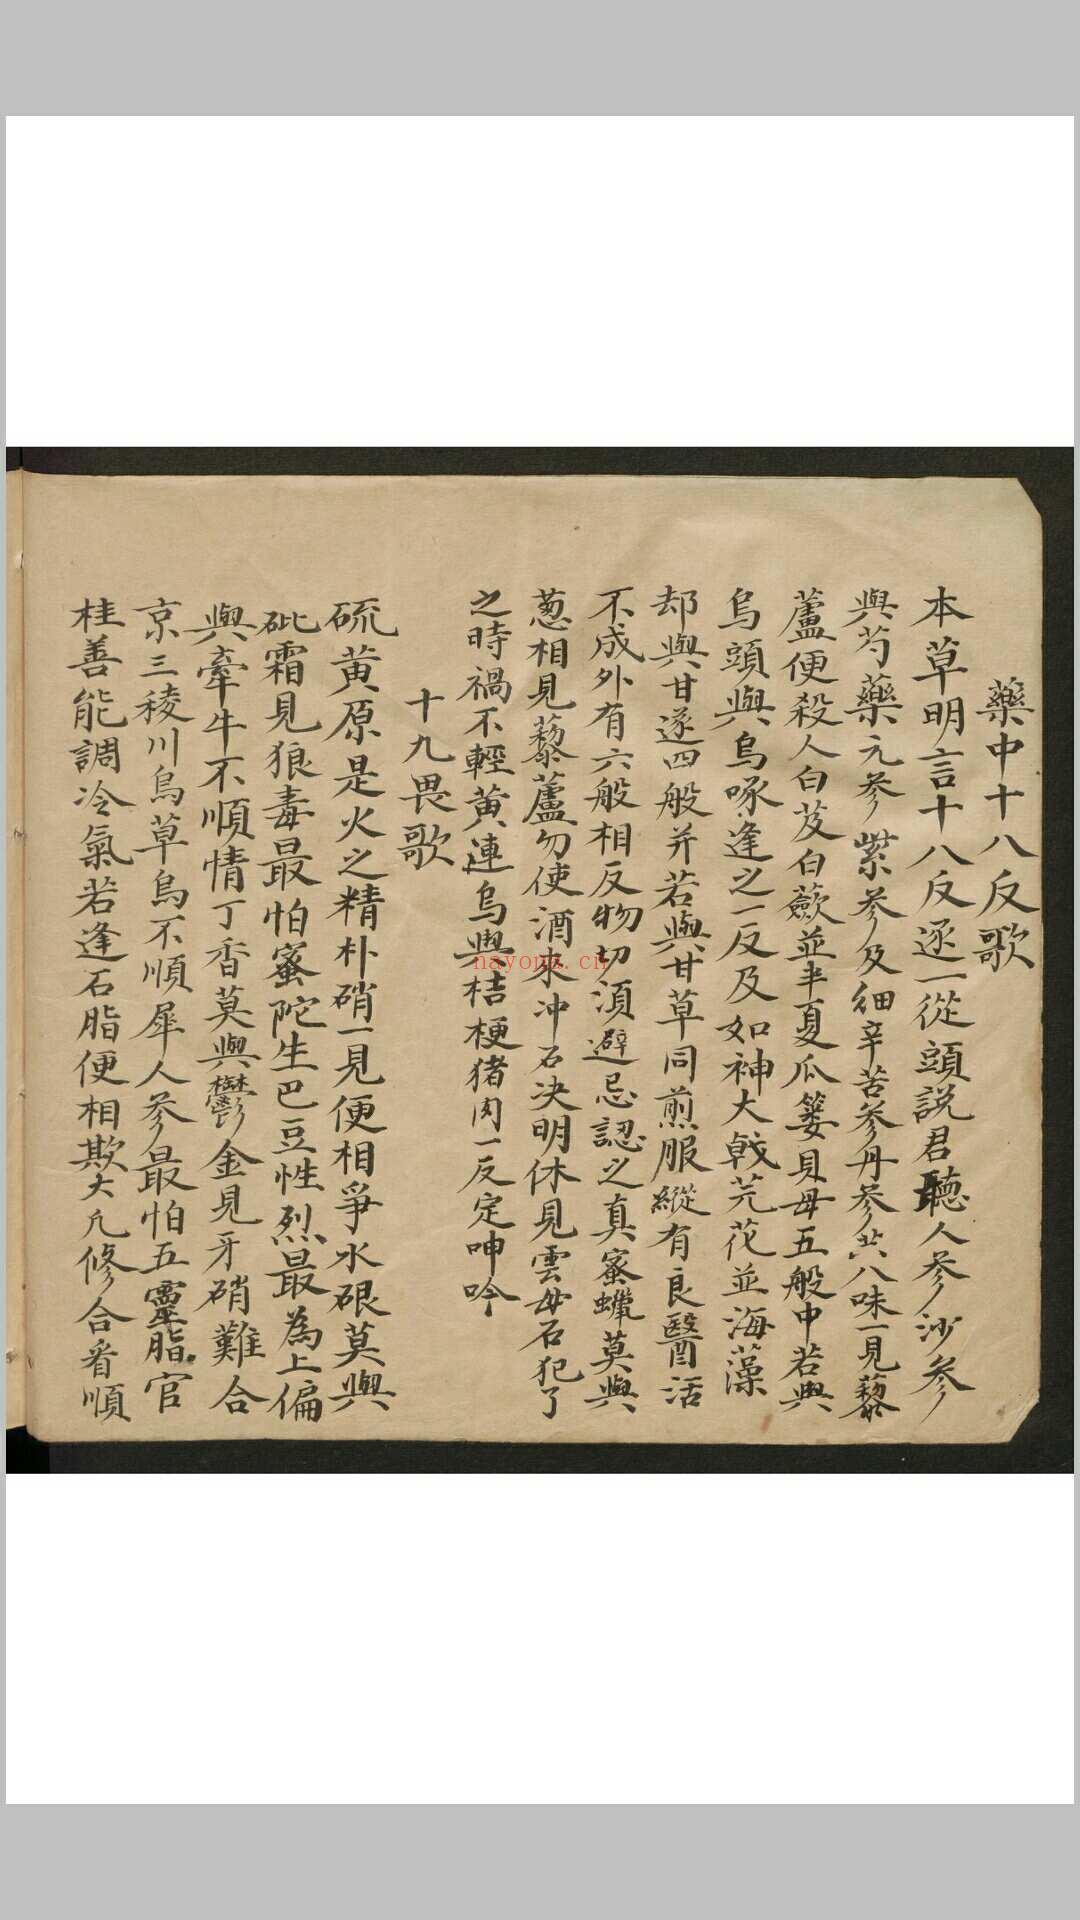 藥中十八反歌
本草明言十八反逐一從頭説君聽人參沙參
與芍藥元參紫參及細辛苦參丹參共八味一見藜
蘆便殺人白芨白蘞並半夏瓜蔞貝母五般中若與
烏頭與烏啄逢之一反及如神大戟芫花並海藻
却與甘遂四般并若與甘草同煎服縱有良醫活
不成外有六般相反物切湏避忌認之真蜜蠟莫與
葱相見藜蘆勿使酒來冲石决明休見雲母石犯了
之時禍不輕黄連烏與桔梗猪肉一反定呻吟
十九畏歌
硫黄原是火之精朴硝一見便相爭水硍莫與
砒霜見狼毒最怕蜜陀生巴豆性烈最為上偏
與牽牛不順情丁香莫與鬱金見牙硝難合
京三稜川烏草烏不順犀人參最怕五靈脂官
桂善能調冷氣若逢石脂便相欺大凢修合看順
nayona.cn